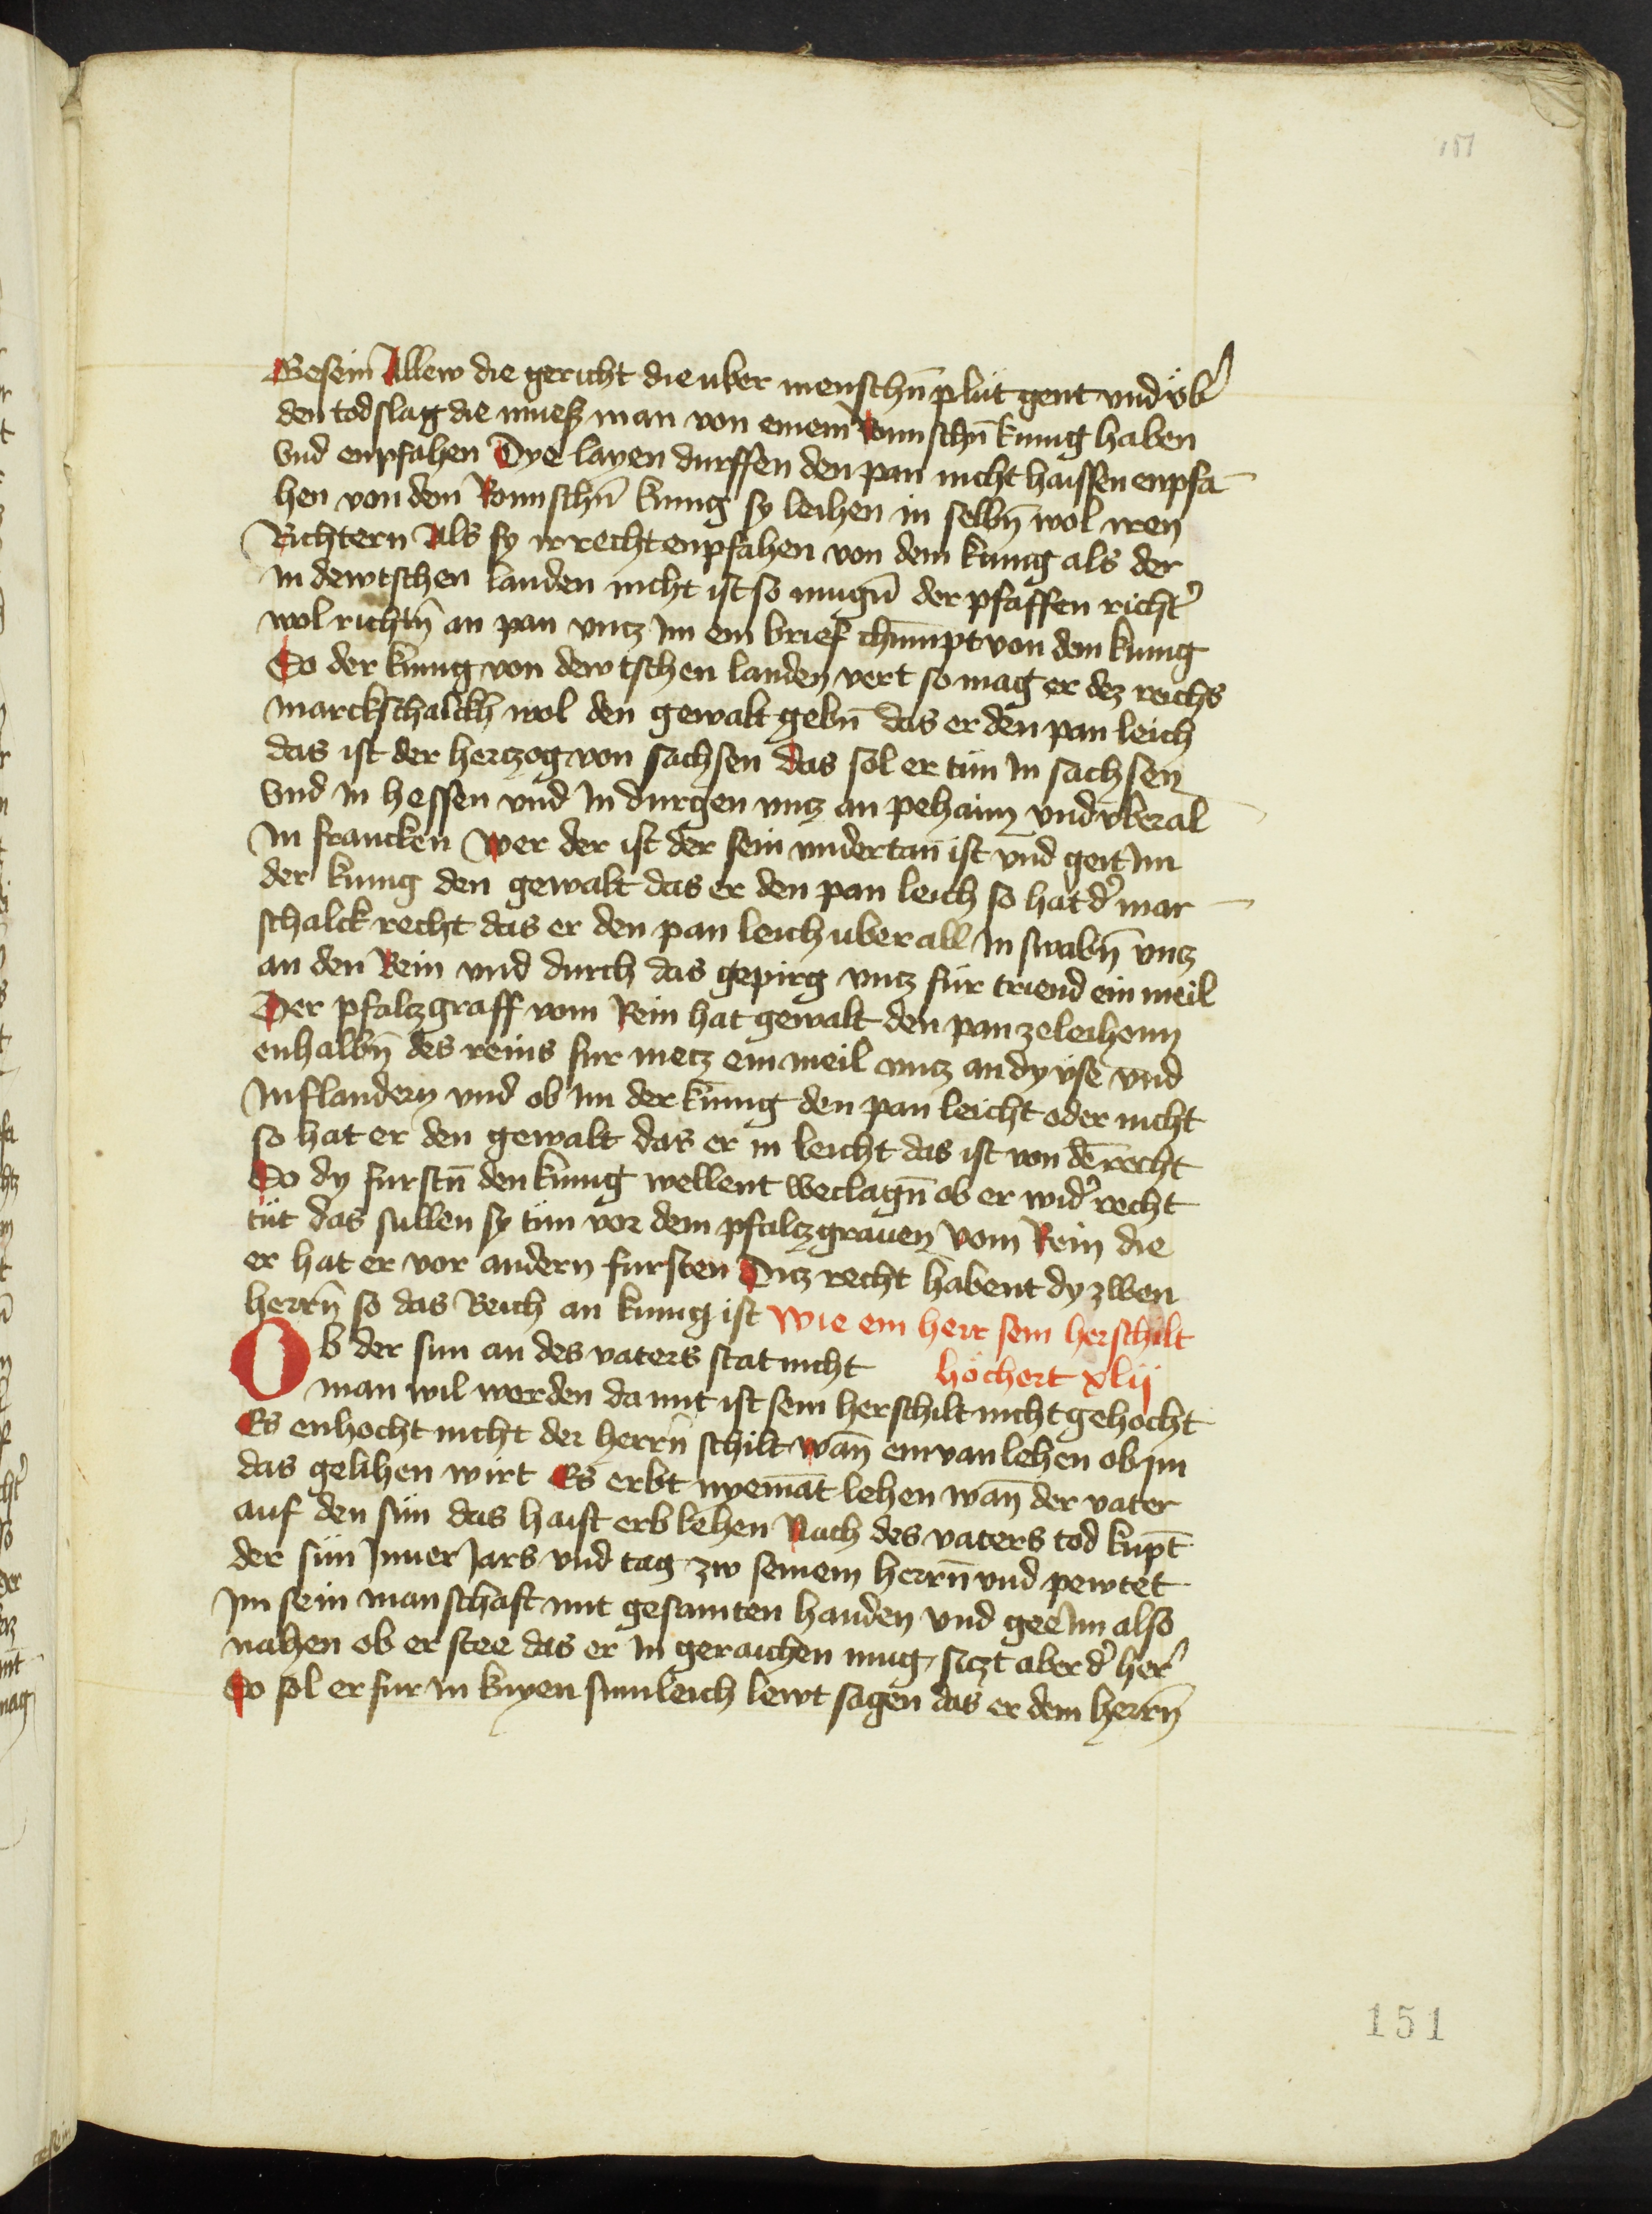 151
Gesein Allew die gericht die uber menschn̄ plüt gent vnd vb̕
den todslag die muesz man von einem Romischn̄ kunig haben
Vnd enpfahen Dye layen durffen den pan nicht haissen enpfa¬
hen von dem Romischn̄ kunig sy leihen in selbn̄ wol iren
Richtern Als sy ir recht enpfahen von dem kunig als der
In dewtschen landen nicht ist so mugn̄ der pfaffen richt̕
wol richtn̄ an pan vntz Im ein brief chūmpt von dem kunig
So der kunig von dewtschen landen vert so mag er dez reichs
marckschalckh wol den gewalt gebn̄ das er den pan leich
das ist der hertzog von sachsen das sol er tün In sachsen
Vnd in hessen vnd In durgen vntz an pehaim vnd vberal
In francken wer der ist der sein vndertan ist vnd geit Im
der kunig den gewalt das er den pan leich so hat d̕ mar¬
schalck recht das er den pan leich uberall In swabn̄ vntz
an den Rein vnd durch das gepirg vntz für triend ein meil
Der pfaltzgraff vom Rein hat gewalt den pan zeleihenn
enhalbn̄ des reins fur metz ein meil vntz an dy yse vnd
In flandern vnd ob im der kunig den pan leicht oder nicht
so hat er den gewalt das er in leicht das ist von dē recht
So dy furstn̄ den kunig wellent beclagn̄ ob er wid̕ recht
tüt das sullen sy tün vor dem pfaltzgrauen vom Rein die
er hat er vor andern fursten Ditz recht habent dy zwen
herrn̄ so das Reich an kunig ist Wie ein herr sein herschilt
höchert xlij
Ob der sun an des vaters stat nicht
man wil werden da mit ist sein herschilt nicht gehocht
Es enhocht nicht der herrn̄ schilt wan̄ ein van lehen ob im
das gelihen wirt Es erbt nyemāt lehen wan̄ der vater
auf den sün das haist erblehen Nach des vaters tod kupt̄
der sün Inner Jars vnd tag zw seinem herrn̄ vnd pewtet
Im sein manschaft mit gesamten handen vnd gee Im also
nahen ob er stee das er In geraichen mug, sitzt aber d̕ her̕
So sol er fur In knyen sumleich lewt sagen das er dem herrn̄
151